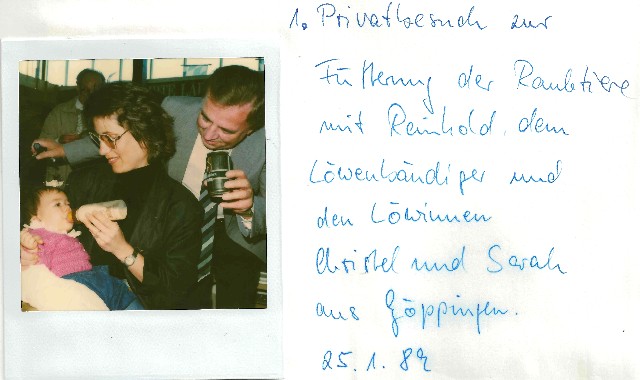 1. Privatbesuch zur
Fütterung der Raubtiere
mit Reinhold, dem
Löwenbändiger und
den Löwinnen
Christel und Sarah
aus Göppingen.
25.1.89